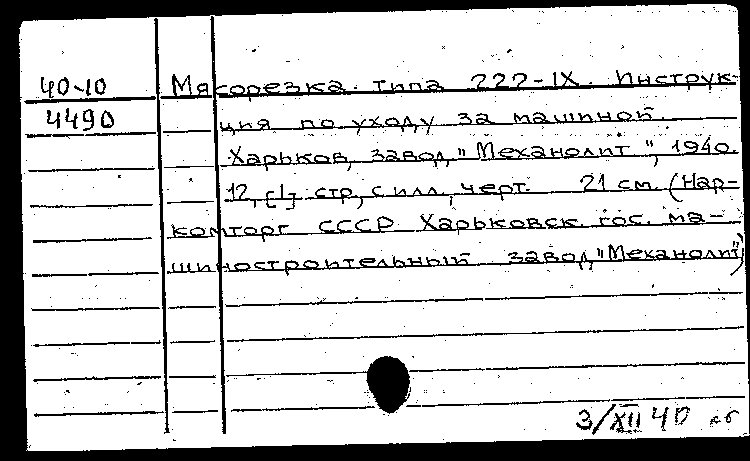 40-10 Мясорезка типа 222-IX. Инструк-
4490 ция по уходу за машиной.
Харьков, завод "Механолит", 1940.
12, [1] стр, с илл, черт. 21 см. (Нар-
комторг СССР Харьковск. гос. ма-
шиностроительный завод "Механолит")
3/XII 40